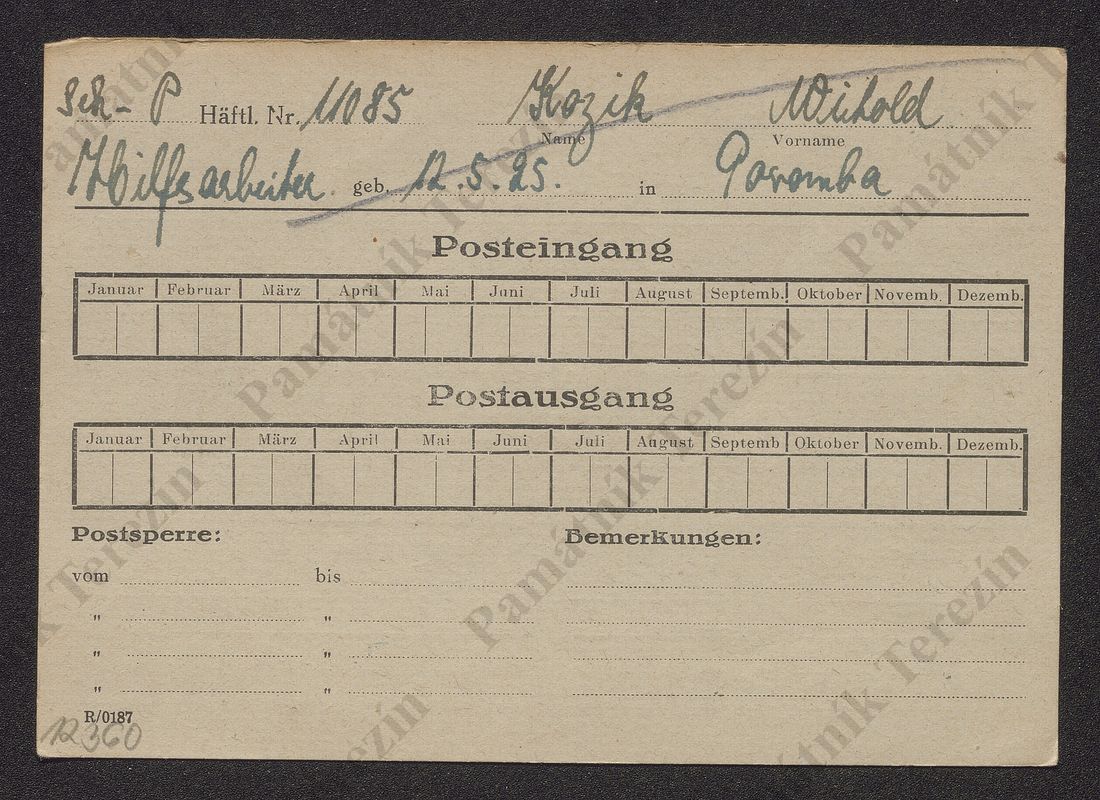 Sch- P Häftl. Nr. 11085 Kozik Withold
Name Vorname
Hilfsarbeiter geb. 12.5.25. in Poromba
Posteingang
Januar Februar März April Mai Juni Juli August Septemb. Oktober Novemb. Dezemb.
Postausgang
Januar Februar März April Mai Juni Juli August Septemb Oktober Novemb. Dezemb.
Postsperre: Bemerkungen:
vom bis
" "
" "
" "
R/0187
12360
Památník Terezín